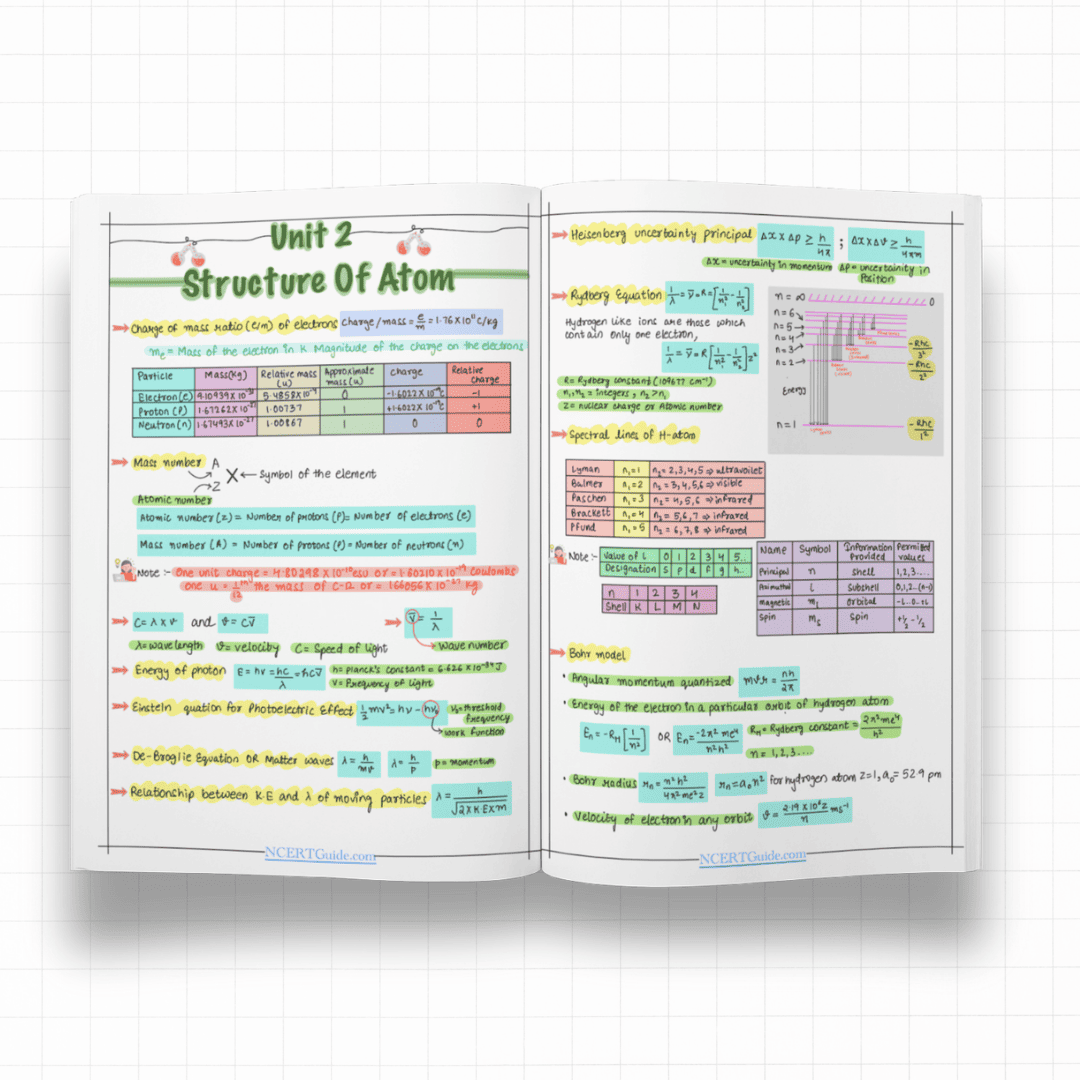 Unit 2
Structure Of Atom
Charge of mass ratio (e/m) of electrons Charge/mass = e/m = 1.76 X 10¹¹ C/kg
me = Mass of the electron in K Magnitude of the charge on the electrons
Particle Mass(kg) Relative mass (u) Approximate mass (u) Charge Relative Charge
Electron(e) 9.10939 X 10⁻³¹ 5.4858 X 10⁻⁴ 0 -1.6022 X 10⁻¹⁹C -1
Proton (P) 1.67262 X 10⁻²⁷ 1.00737 1 +1.6022 X 10⁻¹⁹C +1
Neutron(n) 1.67493 X 10⁻²⁷ 1.00867 1 0 0
Mass number A
X ← Symbol of the element
Z
Atomic number
Atomic number (z) = Number of protons (P) = Number of electrons (e)
Mass number (A) = Number of protons (P) = Number of neutrons (n)
Note :- One unit charge = 4.80298 X 10⁻¹⁰ esu or = 1.60210 X 10⁻¹⁹ Coulombs
one u = 1/12 the mass of or = 1.66056 X 10⁻²⁷ kg
C = λ x ν and ϑ = cν̅ ν̅ = 1/λ
λ = wavelength ϑ = velocity C = Speed of light Wave number
Energy of photon E = hν = hc/λ = hcν̅ h = planck's constant = 6.626 X 10⁻³⁴ J
V = Frequency of light
Einstein quation for Photoelectric Effect ½ mv² = hν - hν₀ ν₀ = threshold frequency
Work function
De-Broglie Equation OR Matter waves λ = h/mv λ = h/p p = momentum
Relationship between K.E and λ of moving particles λ = h/√2 X K.E X m
NCERTGuide.com
Heisenberg uncertainty principal Δx X Δp ≥ h/4π ; Δx X Δϑ ≥ h/4πm
Δx = uncertainty in momentum Δp = uncertainity in Position
Rydberg Equation 1/λ = ν̅ = R = [1/n₁² - 1/n₂²]
Hydrogen like ions are those which
contain only one electron,
1/λ = ν̅ = R [1/n₁² - 1/n₂²] z²
R = Rydberg constant (109677 cm⁻¹)
n₁, n₂ = integers, n₂ > n₁
Z = nuclear charge or Atomic number
n = ∞ 0
n = 6
n = 5
n = 4
n = 3 -Rhc/3²
n = 2 -Rhc/2²
Energy
n = 1 -Rhc/1²
Spectral lines of H-atom
Lyman n₁ = 1 n₂ = 2,3,4,5 ⇒ ultravoilet
Balmer n₁ = 2 n₂ = 3,4,5,6 ⇒ visible
Paschen n₁ = 3 n₂ = 4,5,6 ⇒ infrared
Brackett n₁ = 4 n₂ = 5,6,7 ⇒ infrared
Pfund n₁ = 5 n₂ = 6,7,8 ⇒ infrared
Note :- Value of l 0 1 2 3 4 5..
Designation s p d f g h..
n 1 2 3 4
Shell K L M N
Name Symbol Information Provided Permitted values
Principal n shell 1,2,3....
l Subshell 0,1,2..(n-1)
magnetic ml orbital -l..0..+l
Spin ms Spin +½ -½
Bohr model
• Angular momentum quantized mϑr = nh/2π
• Energy of the electron in a particular orbit of hydrogen atom
En = -RH [1/n²] OR En = -2π² me⁴/n²h² RH = Rydberg constant = 2π² me⁴/h²
n = 1,2,3...
• Bohr radius rn = n²h²/4π²me²z rn = a₀n² For hydrogen atom z=1, a₀ = 52.9 pm
• Velocity of electron in any orbit ϑ = 2.19 X 10⁶ z/n ms⁻¹
NCERTGuide.com